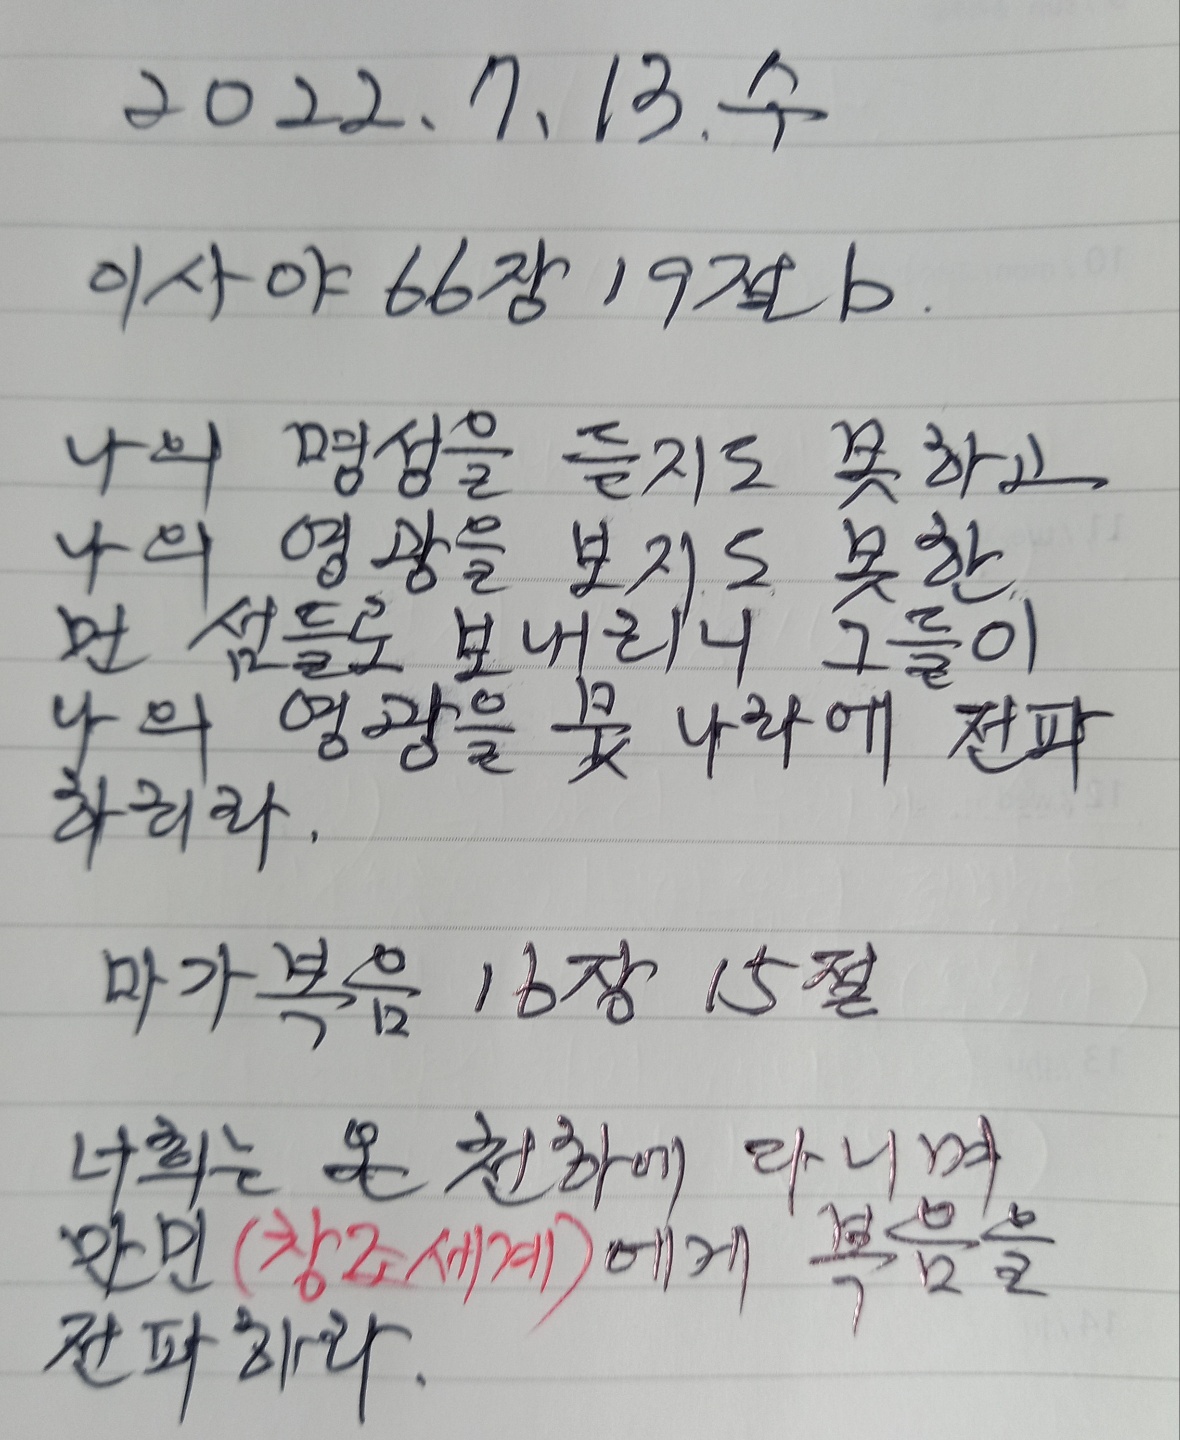 2022. 7. 13. 수
이사야 66장 19절 b.
나의 명성을 듣지도 못하고
나의 영광을 보지도 못한
먼 섬들로 보내리니 그들이
나의 영광을 뭇 나라에 전파
하리라.
마가복음 16장 15절
너희는 온 천하에 다니며
만민(창조세계)에게 복음을
전파하라.